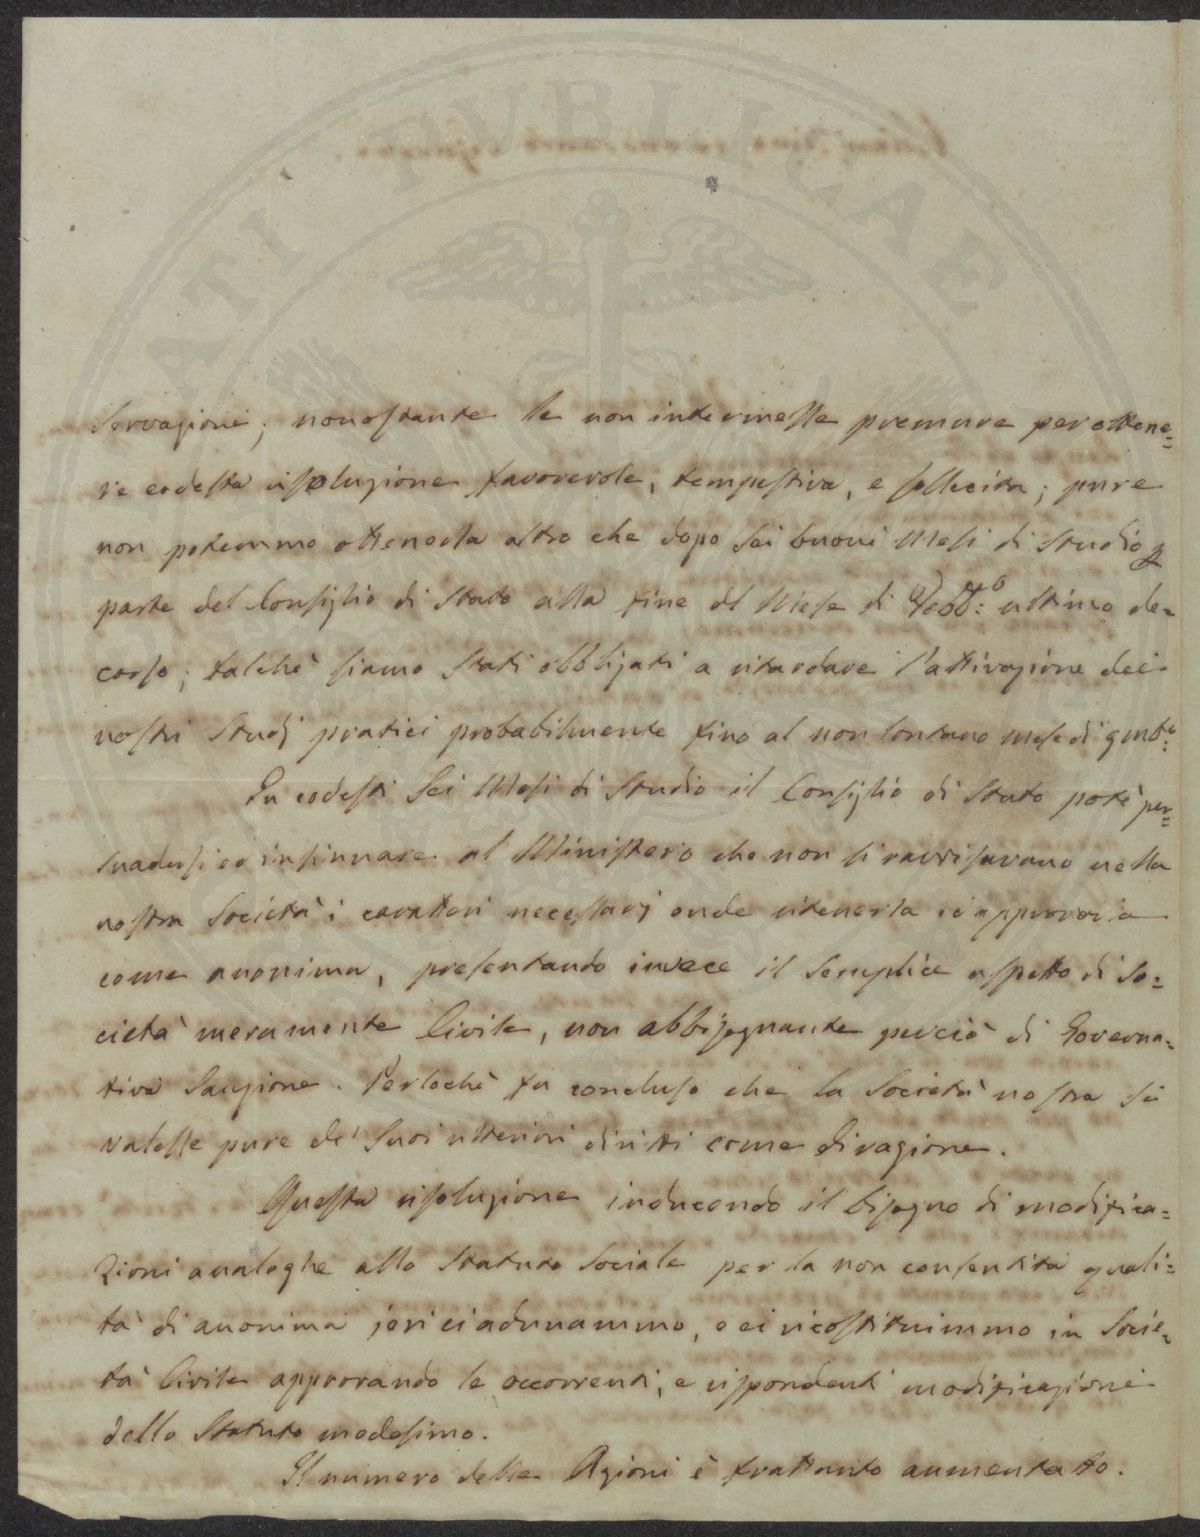 PVBLICAE
ATI
servazione; nonostante le non intermesse premure per ottene=
re codesta risoluzione favorevole, tempestiva, e sollecita; pure
non potemmo ottenerla altro che dopo sei buoni Mesi di studio
parte del Consiglio di Stato alla fine del Mese di Febb:o ultimo de=
corso; talchè siamo stati obbligati a ritardare l'attivazione dei
nostri Studj pratici probabilmente fino al non lontano mese di
In codesti Sei Mesi di Studio il Consiglio di Stato potè per=
suadersi ed insinuare al Ministero che non si ravvisavano nella
nostra Società i caratteri necessarj onde ritenerla ed approvarla
come anonima, presentando invece il semplice aspetto di So=
cietà meramente Civile, non abbisognante perciò di Governa=
tiva Sanzione. Perlochè fu concluso che la Società nostra si
valesse pure de' suoi ulteriori diritti come di ragione.
Questa risoluzione inducendo il bisogno di modifica=
zioni analoghe allo Statuto Sociale per la non consentita quali=
tà di anonima jeri ci adunammo, e ci ricostituimmo in Socie=
tà Civile approvando le occorrenti, e rispondenti modificazioni
dello Statuto medesimo.
Il numero delle Azioni è frattanto aumentato.